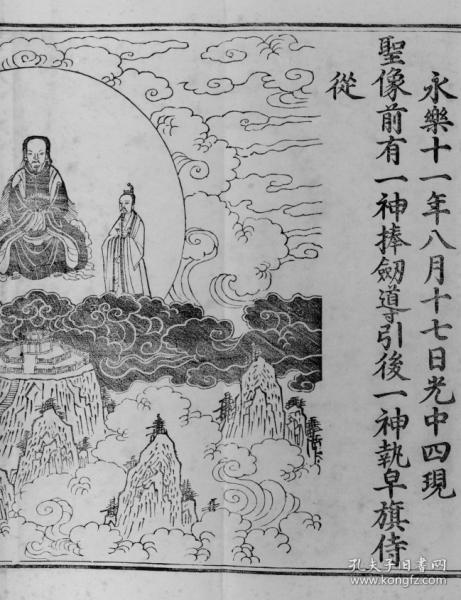 永樂十一年八月十七日光中四現
聖像前有一神捧劔導引後一神執皁旗侍
從
孔夫子旧书网
www.kongfz.com